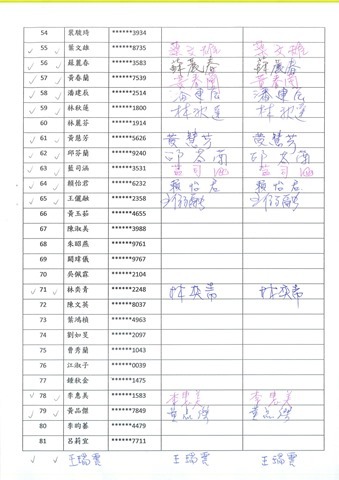 54 裴駿琦 ******3934
55 葉文雄 ******8735 葉文雄 葉文雄
56 蘇麗春 ******3583 蘇麗春 蘇麗春
57 黃春蘭 ******7539 黃春蘭 黃春蘭
58 潘建辰 ******2514 潘建辰 潘建辰
59 林秋蓮 ******1800 林秋蓮 林秋蓮
60 林麗芬 ******1914
61 黃慧芳 ******5626 黃慧芳 黃慧芳
62 邱芬蘭 ******9240
63 藍司涵 ******3531
64 賴怡君 ******6232 賴怡君 賴怡君
65 王儷融 ******2358
66 黃玉茹 ******4655
67 陳淑美 ******3988
68 朱昭燕 ******9761
69 ******9767
70 吳佩霖 ******2104
71 林奕青 ******2248
72 陳文英 ******8037
73 葉鴻楨 ******4963
74 劉如旻 ******2097
75 曹秀蘭 ******1043
76 江淑子 ******0039
77 鍾秋金 ******1475
78 李惠美 ******1583 李惠美 李惠美
79 黃品傑 ******7849
80 李昀蓁 ******4479
81 呂莉宜 ******7711
王瑞雲 王瑞雲 王瑞雲